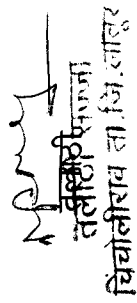 तलाठी सज्जा
चिंचोलीराव ता.जि.लातूर